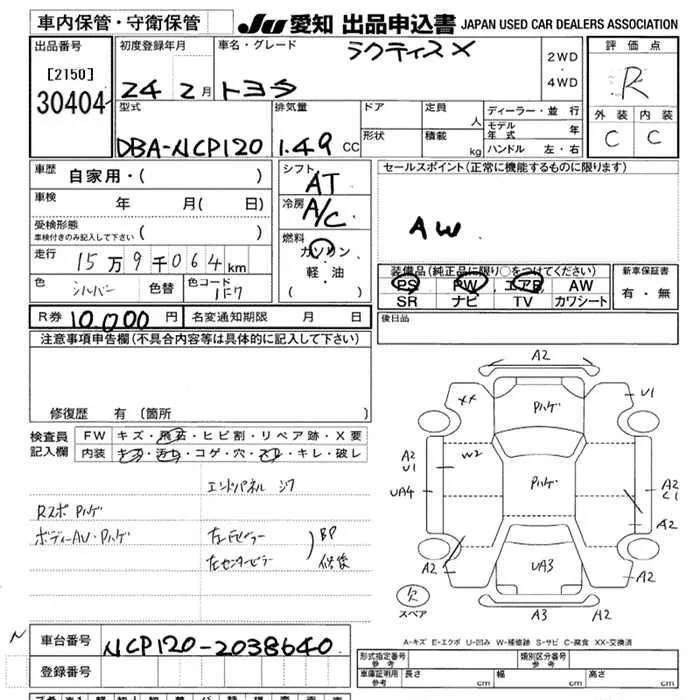 車内保管・守衛保管
JU 愛知 出品申込書 JAPAN USED CAR DEALERS ASSOCIATION
出品番号
[2150]
30404
初度登録年月
24 2月
車名・グレード
ラクティス X
トヨタ
2WD
・
4WD
評価点
R
外装 内装
C C
型式
DBA-NCP120
排気量
1.49 CC
ドア
定員 人
形状
積載 kg
ディーラー・並行
モデル年式 年
ハンドル 左・右
車歴
自家用・( )
車検
年 月( 日)
受検形態
車検付きのみ記入して下さい ( )
走行
15万9千064km
色
シルバー
色替
色コード
1F7
シフト
AT
冷房
A/C
燃料
ガソリン
・
軽・油
( )
セールスポイント(正常に機能するものに限ります)
AW
装備品(純正品に限り○をつけてください)
PS PW エアB AW
SR ナビ TV カワシート
新車保証書
有・無
R券 10,000 円
名変通知期限 月 日
後日品
注意事項申告欄(不具合内容等は具体的に記入して下さい)
修復歴 有(箇所 )
検査員
記入欄
FW キズ・飛石・ヒビ割・リペア跡・X要
内装 キズ・汚れ・コゲ・穴・スレ・キレ・破レ
エンドパネル
Rスポ Pハゲ
ボディーAU・Pハゲ
左Fピラー
左センターピラー
BP
修後
A2
XX
Pハゲ
U1
A2
U1
W2
UA4
Pハゲ
A2
C1
A2
A2
UA3
A2
A3
A2
欠
スペア
A-キズ E-エクボ U-凹み W-補修跡 S-サビ C-腐食 XX-交換済
N
車台番号
NCP120-2038640
登録番号
形式指定番号
参考
類別区分番号
参考
車庫証明用
参考
長さ cm
幅 cm
高さ cm